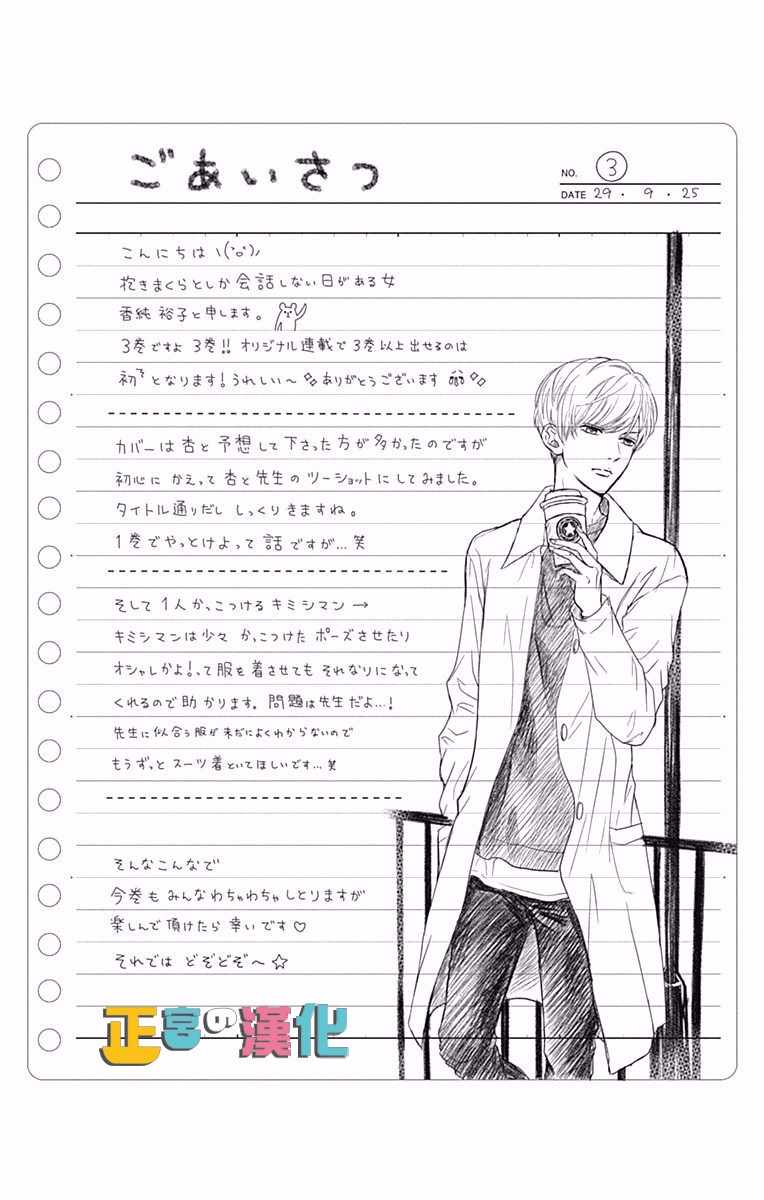 ごあいさつ
NO. ③
DATE 29・9・25
こんにちは ヽ(`ο´)ノ
抱きまくらとしか会話しない日がある女
香純 裕子と申します。
3巻ですよ 3巻!! オリジナル連載で3巻以上出せるのは
初となります!うれしい〜 ありがとうございます
カバーは杏と予想して下さった方が多かったのですが
初心にかえって杏と先生のツーショットにしてみました。
タイトル通りだし しっくりきますね。
1巻でやっとけよって話ですが…笑
そして1人かっこつけるキミシマン→
キミシマンは少々かっこつけたポーズさせたり
オシャレかよ!って服を着させてもそれなりになって
くれるので助かります。問題は先生だよ…!
先生に似合う服が未だによくわからないので
もうずっとスーツ着といてほしいです…笑
そんなこんなで
今巻もみんなわちゃわちゃしとりますが
楽しんで頂けたら幸いです♡
それでは どぞどぞ〜☆
正宮の漢化